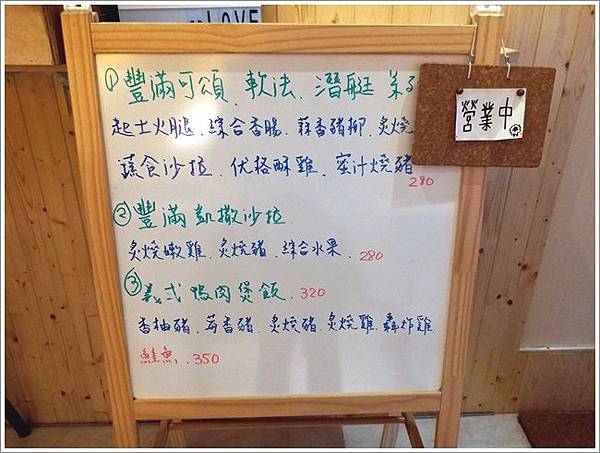 LOVE
① 豐滿可頌、軟法、潛艇
起士火腿、綜合香腸、蒜香豬柳、炙燒
蔬食沙拉、优格酥雞、蜜汁燒豬
280
營業中
② 豐滿凱撒沙拉
炙燒嫩雞、炙燒豬、綜合水果. 280
③ 義式鴨肉煲飯. 320
香柚豬、莓香豬、炙燒豬、炙燒雞、轟炸雞
鮭魚. 350